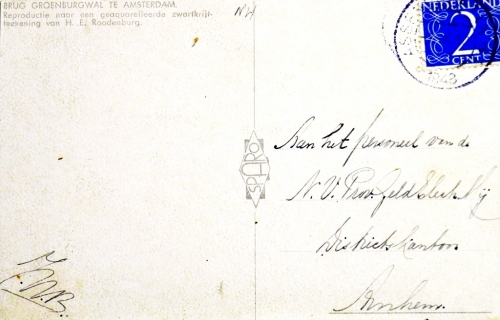 BRUG GROENBURGWAL TE AMSTERDAM.
Reproductie naar een geaquarelleerde zwartkrijt-
teekening van H. E. Roodenburg.
SPARO
NEDERLAND
2
CENT
Aan het personeel van de
N. V. Prov. Geld. Elect. Mij
Districtskantoor
Arnhem.